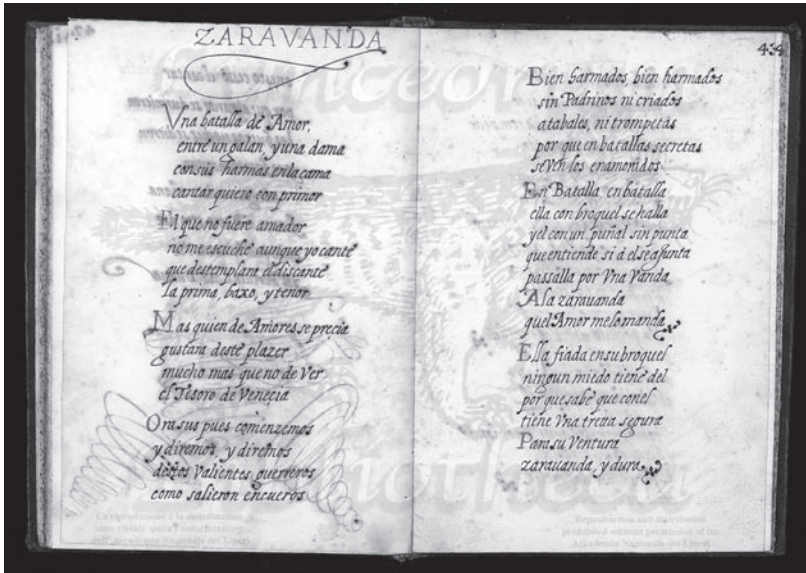 ZARAVANDA
Vna batalla de Amor,
entre un galan, y una dama
con sus harmas en la cama
cantar quiero con primor
El que no fuere amador
no me escuche aunque yo cante
que destemplara el discante
la prima, baxo, y tenor
Mas quien de Amores se precia
gustara deste plazer
mucho mas que no de Ver
el Tesoro de Venecia
Ora sus pues comenzemos
y diremos, y diremos
destos Valientes guerreros
como salieron en cueros
434
Bien harmados, bien harmados
sin Padrinos ni criados
atabales, ni trompetas
por que en batallas secretas
se Ven los enamorados
En Batalla, en batalla
ella con broquel se halla
y el con un puñal sin punta
que entiende si á el se ajunta
passalla por Vna Vanda
A la zarauanda
quel Amor me lo manda
Ella fiada en su broquel
ningun miedo tiene del
por que sabe que con el
tiene Vna treta segura
Para su Ventura
zarauanda, y dura
La riproduzione o distribuzione
sono vietate senza l'autorizzazione
dell'Accademia Nazionale dei Lincei
Reproduction and distribution
prohibited without permission of the
Accademia Nazionale dei Lincei